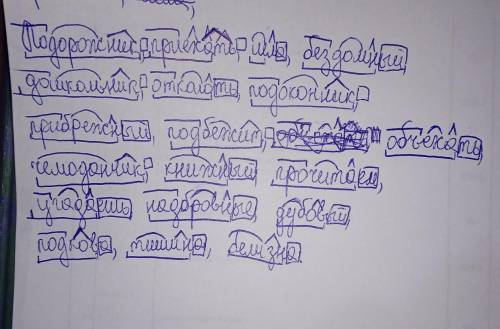 Подорожник, приехать, шла, бездомный
дошкольник, откопать, подоконник,
прибрежный, подбежит, объехать,
чемоданчик, книжный, прочитаем,
угадаешь, надбровные, дубовый,
подкова, тишина, белизна.